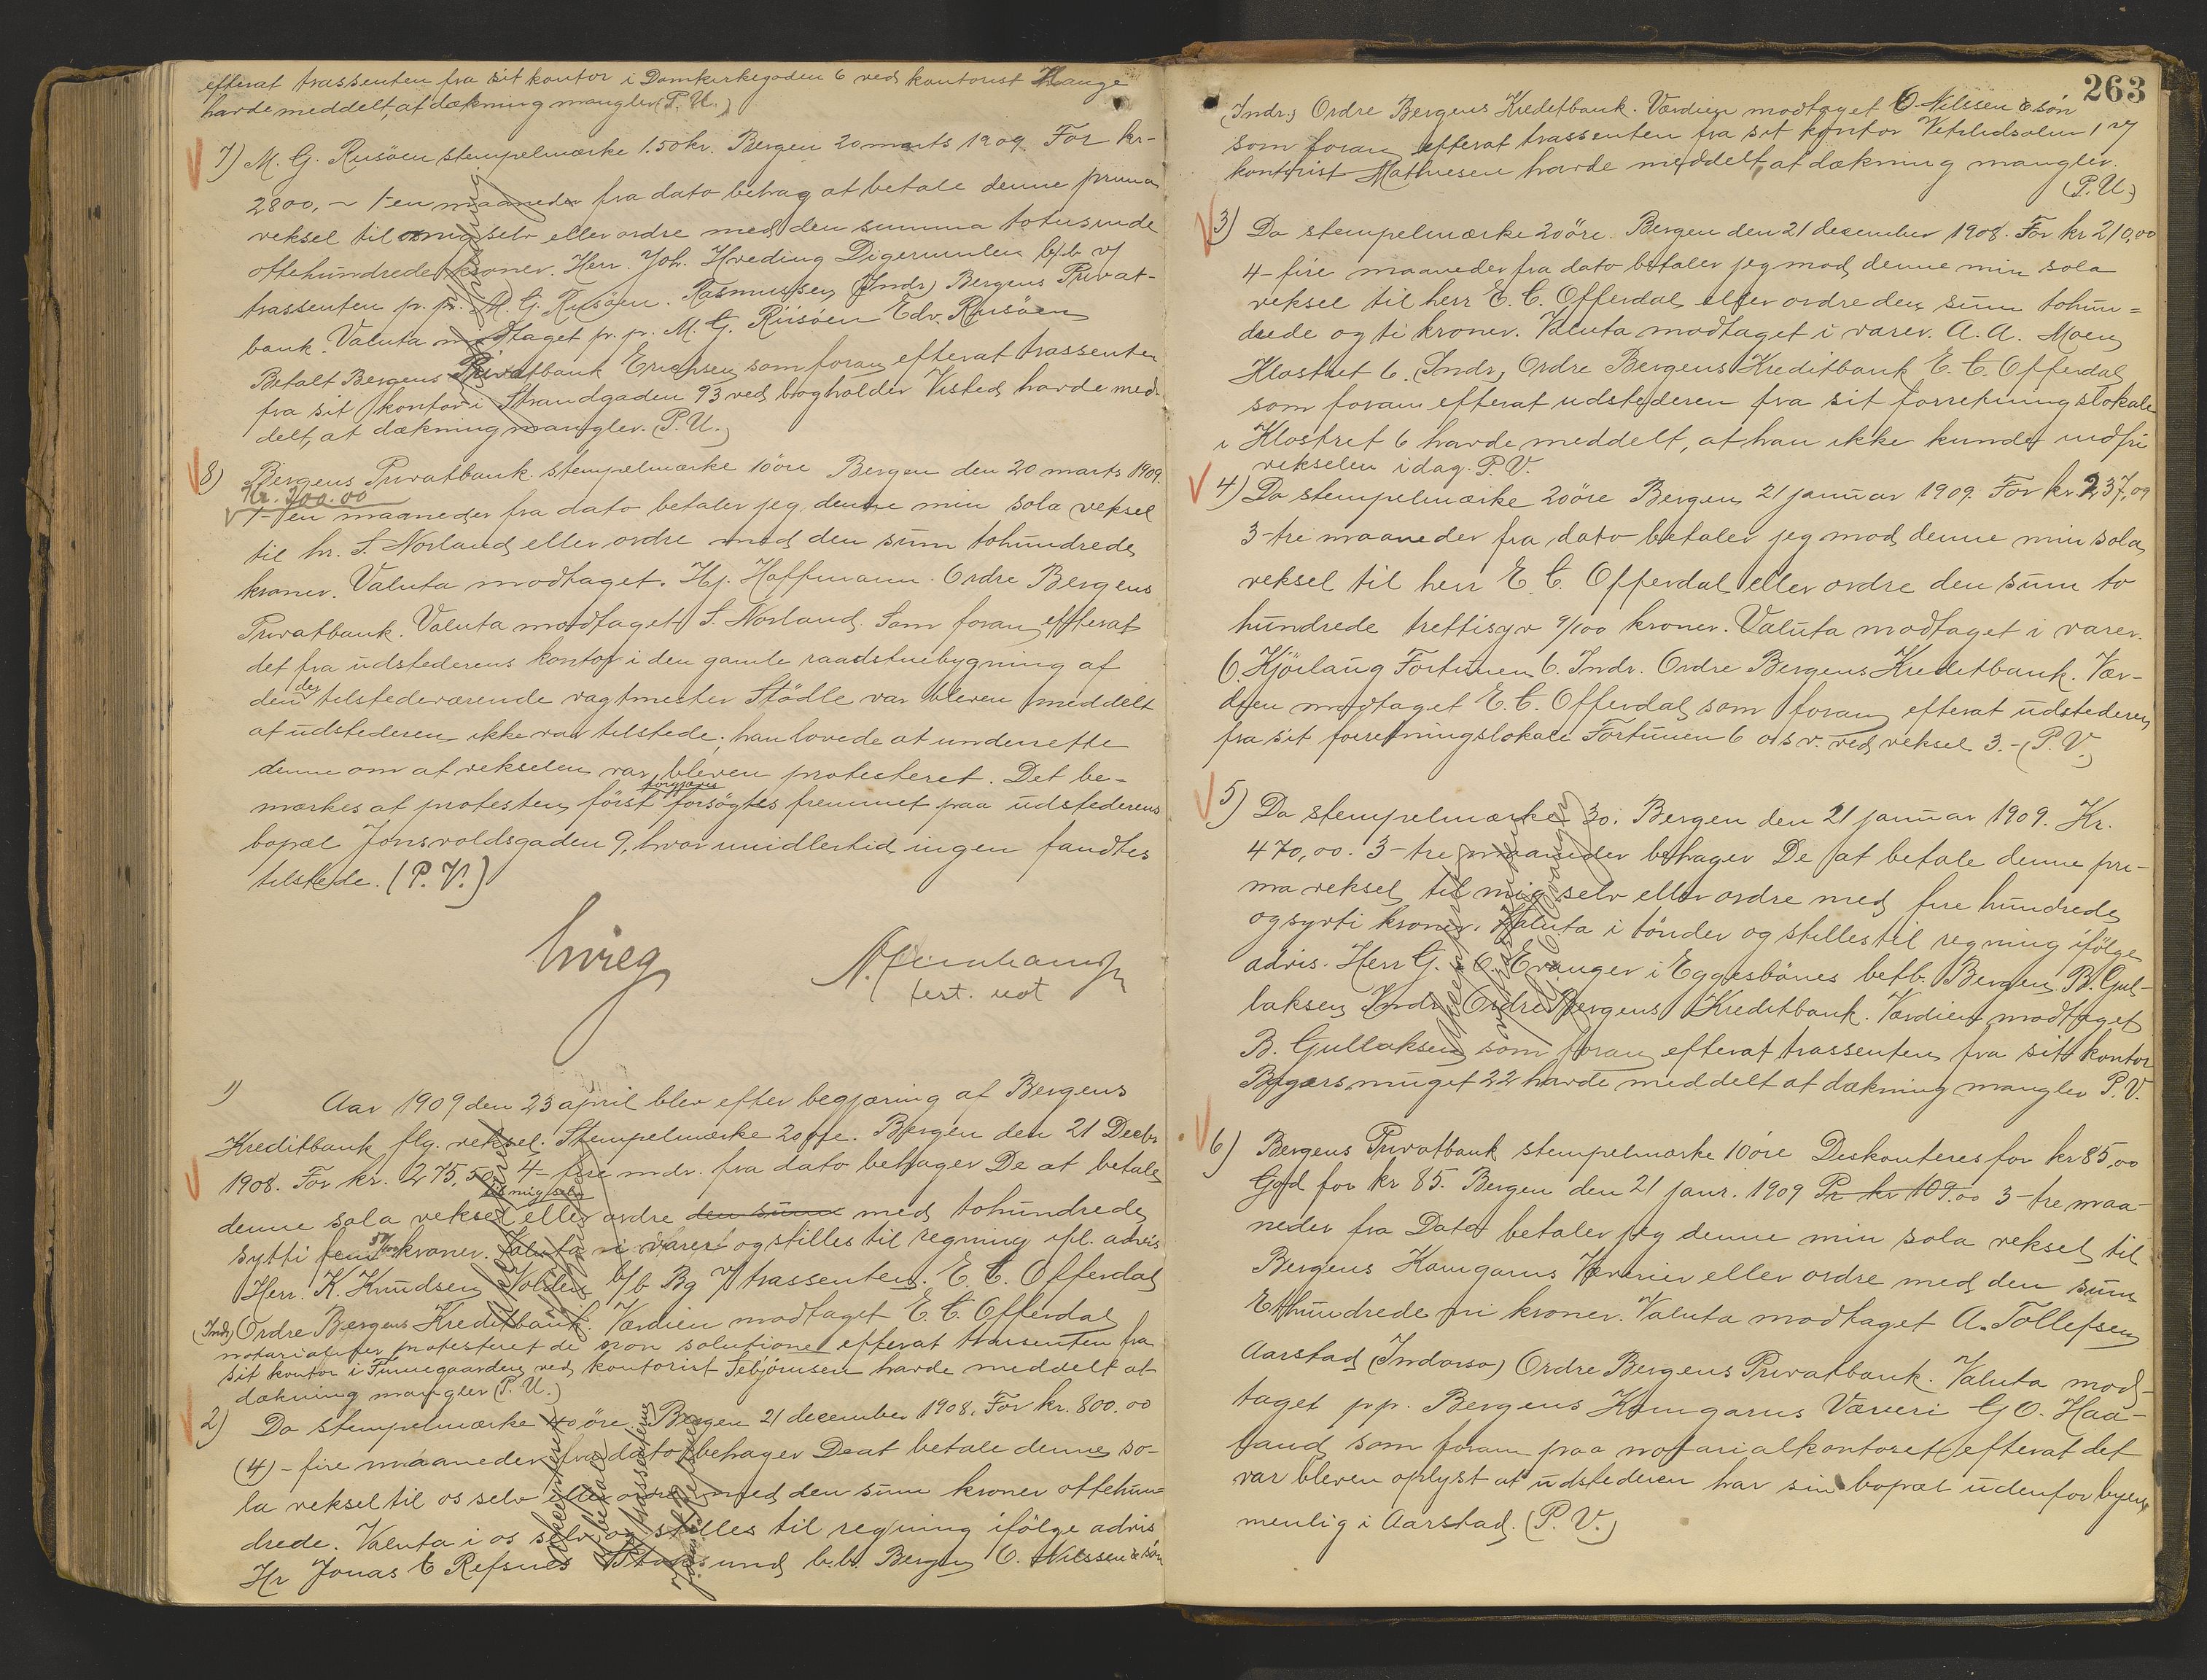 efterat trassenten fra sit kontor i Domkirkegaden 6 ved kontorist Hauge
havde meddelt, at dækning mangler (P. U.)
7) M. G. Rusöen stempelmærke 1.50 kr. Bergen 20 marts 1909. For kr-
2800,- 1-en maaneder fra dato behag at betale denne prima
veksel til mig selv eller ordre med den summa totusinde
ottehundrede kroner. Herr. Joh. Hveding Digermulen b/b v/
trassenten p. pr. M. G. Rusöen. Rasmussen (Indr.) Bergens Privat-
bank. Valuta modtaget pr. pr. M. G. Riisöen Edv. Riisöen
Betalt Bergens Privatbank Erichsen som foran efterat trassenten
fra sit kontor i Strandgaden 93 ved bogholder Visted havde med-
delt, at dækning mangler. (P. U.)
8) Bergens Privatbank stempelmærke 10 öre Bergen den 20 marts 1909.
Kr. 200.00
1-en maaneder fra dato betaler jeg denne min sola veksel
til hr. S. Norland eller ordre med den sum tohundrede
kroner. Valuta modtaget. Hj. Hoffmann. Ordre Bergens
Privatbank. Valuta modtaget S. Norland. Som foran efterat
det fra udstederens kontor i den gamle raadstuebygning af
den der tilstedeværende vagtmester Stödle var bleven meddelt
at udstederen ikke var tilstede; han lovede at underrette
denne om at vekselen var bleven protesteret. Det be-
mærkes at protesten först forgjæves forsögtes fremmet paa udstederens
bopæl Jonsvoldsgaden 9, hvor imidlertid ingen fandtes
tilstede. (P. V.)
1) Aar 1909 den 23 april blev efter begjæring af Bergens
Kreditbank flg. veksel. Stempelmærke 20 öre. Bergen den 21 Decbr
1908. For kr. 275,50 4- fire mdr. fra dato behager De at betale
denne sola veksel til mig selv eller ordre den sum med tohundrede
sytti fem 50/100 kroner. Valuta i varer og stilles til regning ifl. advis
Herr. K. Knudsen Volden b/b Bg v/ trassenten. E. C. Offerdal
(Indr) Ordre Bergens Kreditbank. Værdien modtaget E. C. Offerdal
notarialiter protesteret de non solutione efterat trassenten fra
sit kontor i Finnegaarden ved kontorist Tebjörnsen havde meddelt at
dækning mangler (P. U.)
2) Do stempelmærke 40 öre. Bergen 21 december 1908. For kr. 800.00
(4)- fire maaneder fra dato behager De at betale denne so-
la veksel til os selv eller ordre med den sum kroner ottehun-
drede. Valuta i os selv og stilles til regning ifölge advis
Hr Jonas C Refsnes b.b. Bergen O. Nilssen & sön
263
(Indr.) Ordre Bergens Kreditbank. Værdien modtaget O. Nilssen & sön
som foran efterat trassenten fra sit kontor Vetrlidsalm 1 v/
kontorist Mathiesen havde meddelt, at dækning mangler.
(P. U.)
3) Do stempelmærke 20 öre. Bergen den 21 december 1908. For kr 210,00
4-fire maaneder fra dato betaler jeg mod denne min sola
veksel til herr E. C. Offerdal eller ordre den sum tohun=
drede og ti kroner. Valuta modtaget i varer. A. A. Moen
Klostret 6. (Indr.) Ordre Bergens Kreditbank E. C. Offerdal
som foran efterat udstederen fra sit forretningslokale
i Klostret 6 havde meddelt, at han ikke kunde indfri
vekselen idag. P. V.
4) Do stempelmærke 20 öre Bergen 21 januar 1909. For kr 237,09
3-tre maaneder fra dato betaler jeg mod denne min sola
veksel til herr E. C. Offerdal eller ordre den sum to
hundrede trettisyv 9/100 kroner. Valuta modtaget i varer.
O. Kjörlaug Fortunen 6. Indr. Ordre Bergens Kreditbank. Vær-
dien modtaget E. C. Offerdal som foran efterat udstederen
fra sit forretningslokale Fortunen 6 osv. ved veksel 3.- (P. V.)
5) Do stempelmærke 30. Bergen den 21 januar 1909. Kr.
470,00. 3-tre maaneder behager De at betale denne pri-
ma veksel til mig selv eller ordre med fire hundrede
og sytti kroner. Valuta i tönder og stilles til regning ifölge
advis. Herr G. C. Evanger i Eggesbönes betb. Bergen. B. Gul-
laksen Indr. Ordre Bergens Kreditbank. Værdien modtaget
B. Gullaksen som foran efterat trassenten fra sit kontor
Bygarsmuget 22 havde meddelt at dækning mangler P. V.
6) Bergens Privatbank stempelmærke 10 öre Diskonteres for kr 85,00
God for kr 85. Bergen den 21 janr. 1909 Pr kr 109.00 3-tre maa-
neder fra Dato betaler jeg denne min sola veksel til
Bergens Kamgarns Væveri eller ordre med den sum
Ethundrede ni kroner. Valuta modtaget A. Tollefsen
Aarstad (Indorso) Ordre Bergens Privatbank. Valuta mod-
taget pp. Bergens Kamgarns Væveri G O. Haa-
land som foran paa notarialkontoret efterat det
var bleven oplyst at udstederen har sin bopæl udenfor byen
menlig i Aarstad. (P. V.)